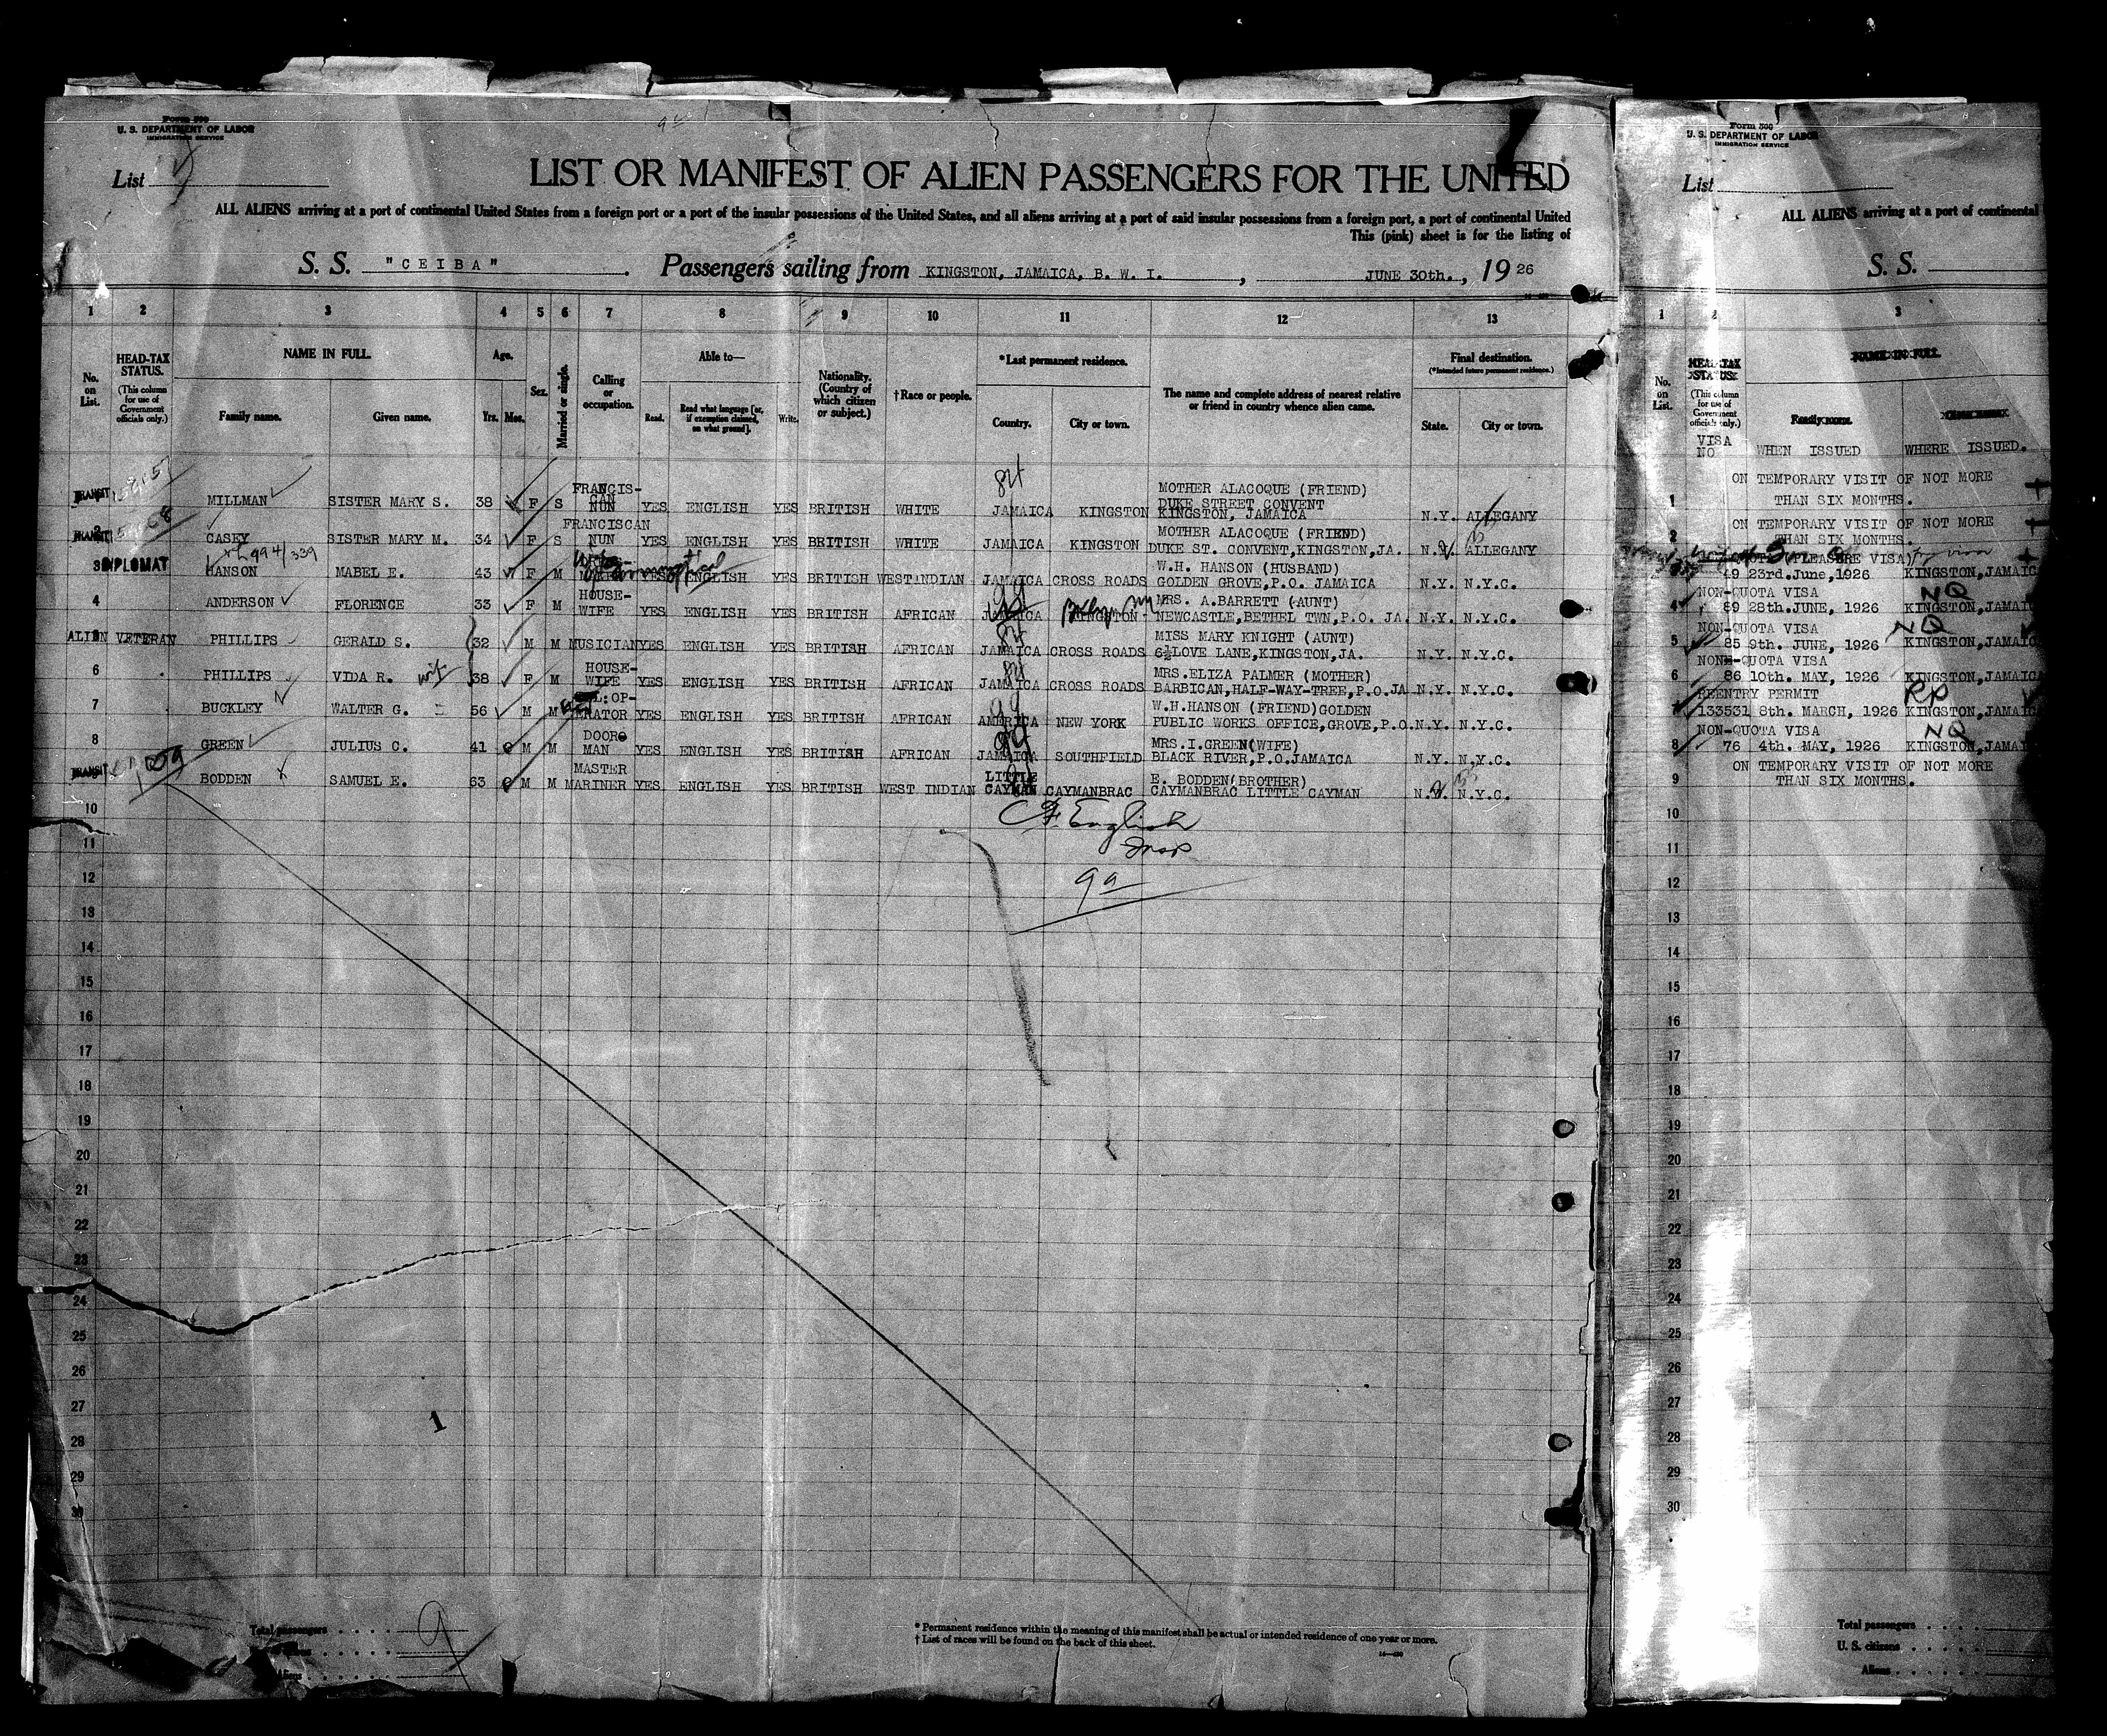 Form 500
U. S. DEPARTMENT OF LABOR
IMMIGRATION SERVICE
List
LIST OR MANIFEST OF ALIEN PASSENGERS FOR THE UNITED
ALL ALIENS arriving at a port of continental United States from a foreign port or a port of the insular possessions of the United States, and all aliens arriving at a port of said insular possessions from a foreign port, a port of continental United
This (pink) sheet is for the listing of
S. S. "CEIBA". Passengers sailing from KINGSTON, JAMAICA, B. W. I., JUNE 30th., 1926
1 2 3 4 5 6 7 8 9 10 11 12 13
No. on List.
HEAD-TAX STATUS.
(This column for use of Government officials only.)
NAME IN FULL.
Family name. Given name.
Age.
Yrs. Mos.
Sex.
Married or single.
Calling or occupation.
Able to—
Read. Read what language [or, if exemption claimed, on what ground]. Write.
Nationality. (Country of which citizen or subject.)
†Race or people.
*Last permanent residence.
Country. City or town.
The name and complete address of nearest relative or friend in country whence alien came.
Final destination.
(*Intended future permanent residence.)
State. City or town.
TRANSIT MILLMAN SISTER MARY S. 38 F S FRANCIS-CAN NUN YES ENGLISH YES BRITISH WHITE JAMAICA KINGSTON MOTHER ALACOQUE (FRIEND) DUKE STREET CONVENT KINGSTON, JAMAICA N.Y. ALLEGANY
2 TRANSIT CASEY SISTER MARY M. 34 F S FRANCISCAN NUN YES ENGLISH YES BRITISH WHITE JAMAICA KINGSTON MOTHER ALACOQUE (FRIEND) DUKE ST. CONVENT,KINGSTON,JA. N.Y. ALLEGANY
3 DIPLOMAT HANSON MABEL E. 43 F M YES ENGLISH YES BRITISH WEST INDIAN JAMAICA CROSS ROADS W.H. HANSON (HUSBAND) GOLDEN GROVE,P.O. JAMAICA N.Y. N.Y.C.
4 ANDERSON FLORENCE 33 F M HOUSE-WIFE YES ENGLISH YES BRITISH AFRICAN JAMAICA KINGSTON MRS. A.BARRETT (AUNT) NEWCASTLE,BETHEL TWN,P.O. JA. N.Y. N.Y.C.
5 ALIEN VETERAN PHILLIPS GERALD S. 32 M M MUSICIAN YES ENGLISH YES BRITISH AFRICAN JAMAICA CROSS ROADS MISS MARY KNIGHT (AUNT) 6½LOVE LANE,KINGSTON,JA. N.Y. N.Y.C.
6 PHILLIPS VIDA R. wife 38 F M HOUSE-WIFE YES ENGLISH YES BRITISH AFRICAN JAMAICA CROSS ROADS MRS.ELIZA PALMER (MOTHER) BARBICAN,HALF-WAY-TREE,P.O.JA N.Y. N.Y.C.
7 BUCKLEY WALTER G. 56 M M OP-ERATOR YES ENGLISH YES BRITISH AFRICAN AMERICA NEW YORK W.H.HANSON (FRIEND)GOLDEN PUBLIC WORKS OFFICE,GROVE,P.O. N.Y. N.Y.C.
8 GREEN JULIUS C. 41 M M DOOR MAN YES ENGLISH YES BRITISH AFRICAN JAMAICA SOUTHFIELD MRS.I.GREEN(WIFE) BLACK RIVER,P.O.JAMAICA N.Y. N.Y.C.
TRANSIT BODDEN SAMUEL E. 63 M M MASTER MARINER YES ENGLISH YES BRITISH WEST INDIAN LITTLE CAYMAN CAYMANBRAC E. BODDEN(BROTHER) CAYMANBRAC LITTLE CAYMAN N.Y. N.Y.C.
10
C F English
Insp
11
12
9a
13
14
15
16
17
18
19
20
21
22
23
24
25
26
27
1
28
29
30
Total passengers 9
Aliens
* Permanent residence within the meaning of this manifest shall be actual or intended residence of one year or more.
† List of races will be found on the back of this sheet.
Form 500
U. S. DEPARTMENT OF LABOR
IMMIGRATION SERVICE
List
ALL ALIENS arriving at a port of continental
S. S.
1 2 3
No. on List.
HEAD-TAX STATUS
(This column for use of Government officials only.)
NAME IN FULL
Family name
VISA NO WHEN ISSUED WHERE ISSUED.
1 ON TEMPORARY VISIT OF NOT MORE THAN SIX MONTHS.
2 ON TEMPORARY VISIT OF NOT MORE THAN SIX MONTHS.
(PLEASURE VISA)
49 23rd.June,1926 KINGSTON,JAMAICA
NON-QUOTA VISA NQ
4 89 28th.JUNE, 1926 KINGSTON,JAMAI
NON-QUOTA VISA NQ
5 85 9th. JUNE, 1926 KINGSTON,JAMAIC
NON-QUOTA VISA
6 86 10th. MAY, 1926 KINGSTON,JAMAICA
REENTRY PERMIT RP
133531 8th. MARCH, 1926 KINGSTON,JAMAIC
NON-QUOTA VISA NQ
8 76 4th. MAY, 1926 KINGSTON,JAMAI
9 ON TEMPORARY VISIT OF NOT MORE THAN SIX MONTHS.
10
11
12
13
14
15
16
17
18
19
20
21
22
23
24
25
26
27
28
29
30
Total passengers
U. S. citizens
Aliens